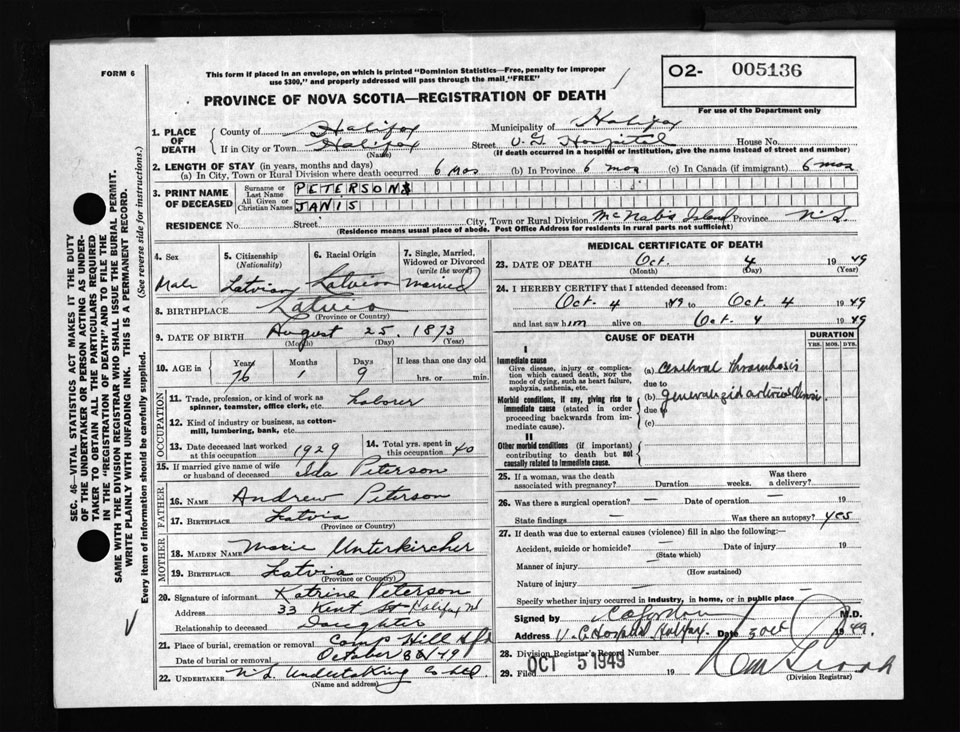 FORM 6
This form if placed in an envelope, on which is printed "Dominion Statistics—Free, penalty for improper
use $300," and properly addressed will pass through the mail "FREE"
O2- 005136
For use of the Department only
PROVINCE OF NOVA SCOTIA—REGISTRATION OF DEATH
SEC. 46—VITAL STATISTICS ACT MAKES IT THE DUTY
OF THE UNDERTAKER OR PERSON ACTING AS UNDER-
TAKER TO OBTAIN ALL THE PARTICULARS REQUIRED
IN THE "REGISTRATION OF DEATH" AND TO FILE THE
SAME WITH THE DIVISION REGISTRAR WHO SHALL ISSUE THE BURIAL PERMIT.
WRITE PLAINLY WITH UNFADING INK. THIS IS A PERMANENT RECORD.
Every item of information should be carefully supplied. (See reverse side for instructions.)
1. PLACE OF DEATH County of Halifax Municipality of Halifax
If in City or Town Halifax Street V.G. Hospital House No.
(Name) (If death occurred in a hospital or institution, give the name instead of street and number)
2. LENGTH OF STAY (in years, months and days)
(a) In City, Town or Rural Division where death occurred 6 mos (b) In Province 6 mos (c) In Canada (if immigrant) 6 mos
3. PRINT NAME OF DECEASED Surname or Last Name PETERSONS
All Given or Christian Names JANIS
RESIDENCE No. Street City, Town or Rural Division McNab's Island Province N.S.
(Residence means usual place of abode. Post Office Address for residents in rural parts not sufficient)
4. Sex 5. Citizenship (Nationality) 6. Racial Origin 7. Single, Married, Widowed or Divorced (write the word)
Male Latvian Latvian Married
8. BIRTHPLACE Latvia
(Province or Country)
9. DATE OF BIRTH August 25. 1873
(Month) (Day) (Year)
10. AGE in Years Months Days If less than one day old
76 1 9 hrs. or min.
OCCUPATION
11. Trade, profession, or kind of work as spinner, teamster, office clerk, etc. Laborer
12. Kind of industry or business, as cotton-mill, lumbering, bank, etc.
13. Date deceased last worked at this occupation 1929 14. Total yrs. spent in this occupation 40
15. If married give name of wife or husband of deceased Ida Peterson
FATHER
16. NAME Andrew Peterson
17. BIRTHPLACE Latvia
(Province or Country)
MOTHER
18. MAIDEN NAME Marie Unterkircher
19. BIRTHPLACE Latvia
(Province or Country)
20. Signature of informant Katrine Peterson
Address 33 Kent St Halifax
Relationship to deceased Daughter
21. Place of burial, cremation or removal Camp Hill
Date of burial or removal October
22. UNDERTAKER N.S. Undertaking Co Ltd.
(Name and address)
MEDICAL CERTIFICATE OF DEATH
23. DATE OF DEATH Oct. 4 1949
(Month) (Day) (Year)
24. I HEREBY CERTIFY that I attended deceased from:
Oct. 4 1949 to Oct 4 1949
and last saw him alive on Oct 4 1949
CAUSE OF DEATH DURATION
YRS. MOS. DYS.
I
Immediate cause
Give disease, injury or complication which caused death, NOR the mode of dying, such as heart failure, asphyxia, asthenia, etc.
(a) Cerebral thrombosis
due to
Morbid conditions, if any, giving rise to immediate cause (stated in order proceeding backwards from immediate cause).
(b) generalized arteriosclerosis.
due to
(c)
II
Other morbid conditions (if important) contributing to death but not causally related to immediate cause.
25. If a woman, was the death associated with pregnancy? Duration weeks. Was there a delivery?
26. Was there a surgical operation? — Date of operation — 19
State findings — Was there an autopsy? yes
27. If death was due to external causes (violence) fill in also the following:
Accident, suicide or homicide? Date of injury 19
(State which)
Manner of injury
(How sustained)
Nature of injury —
Specify whether injury occurred in industry, in home, or in public place —
Signed by M.D.
Address V.G. Hospital Halifax. Date 5 Oct 1949.
28. Division Registrar's Record Number
29. Filed OCT 5 1949 19
(Division Registrar)